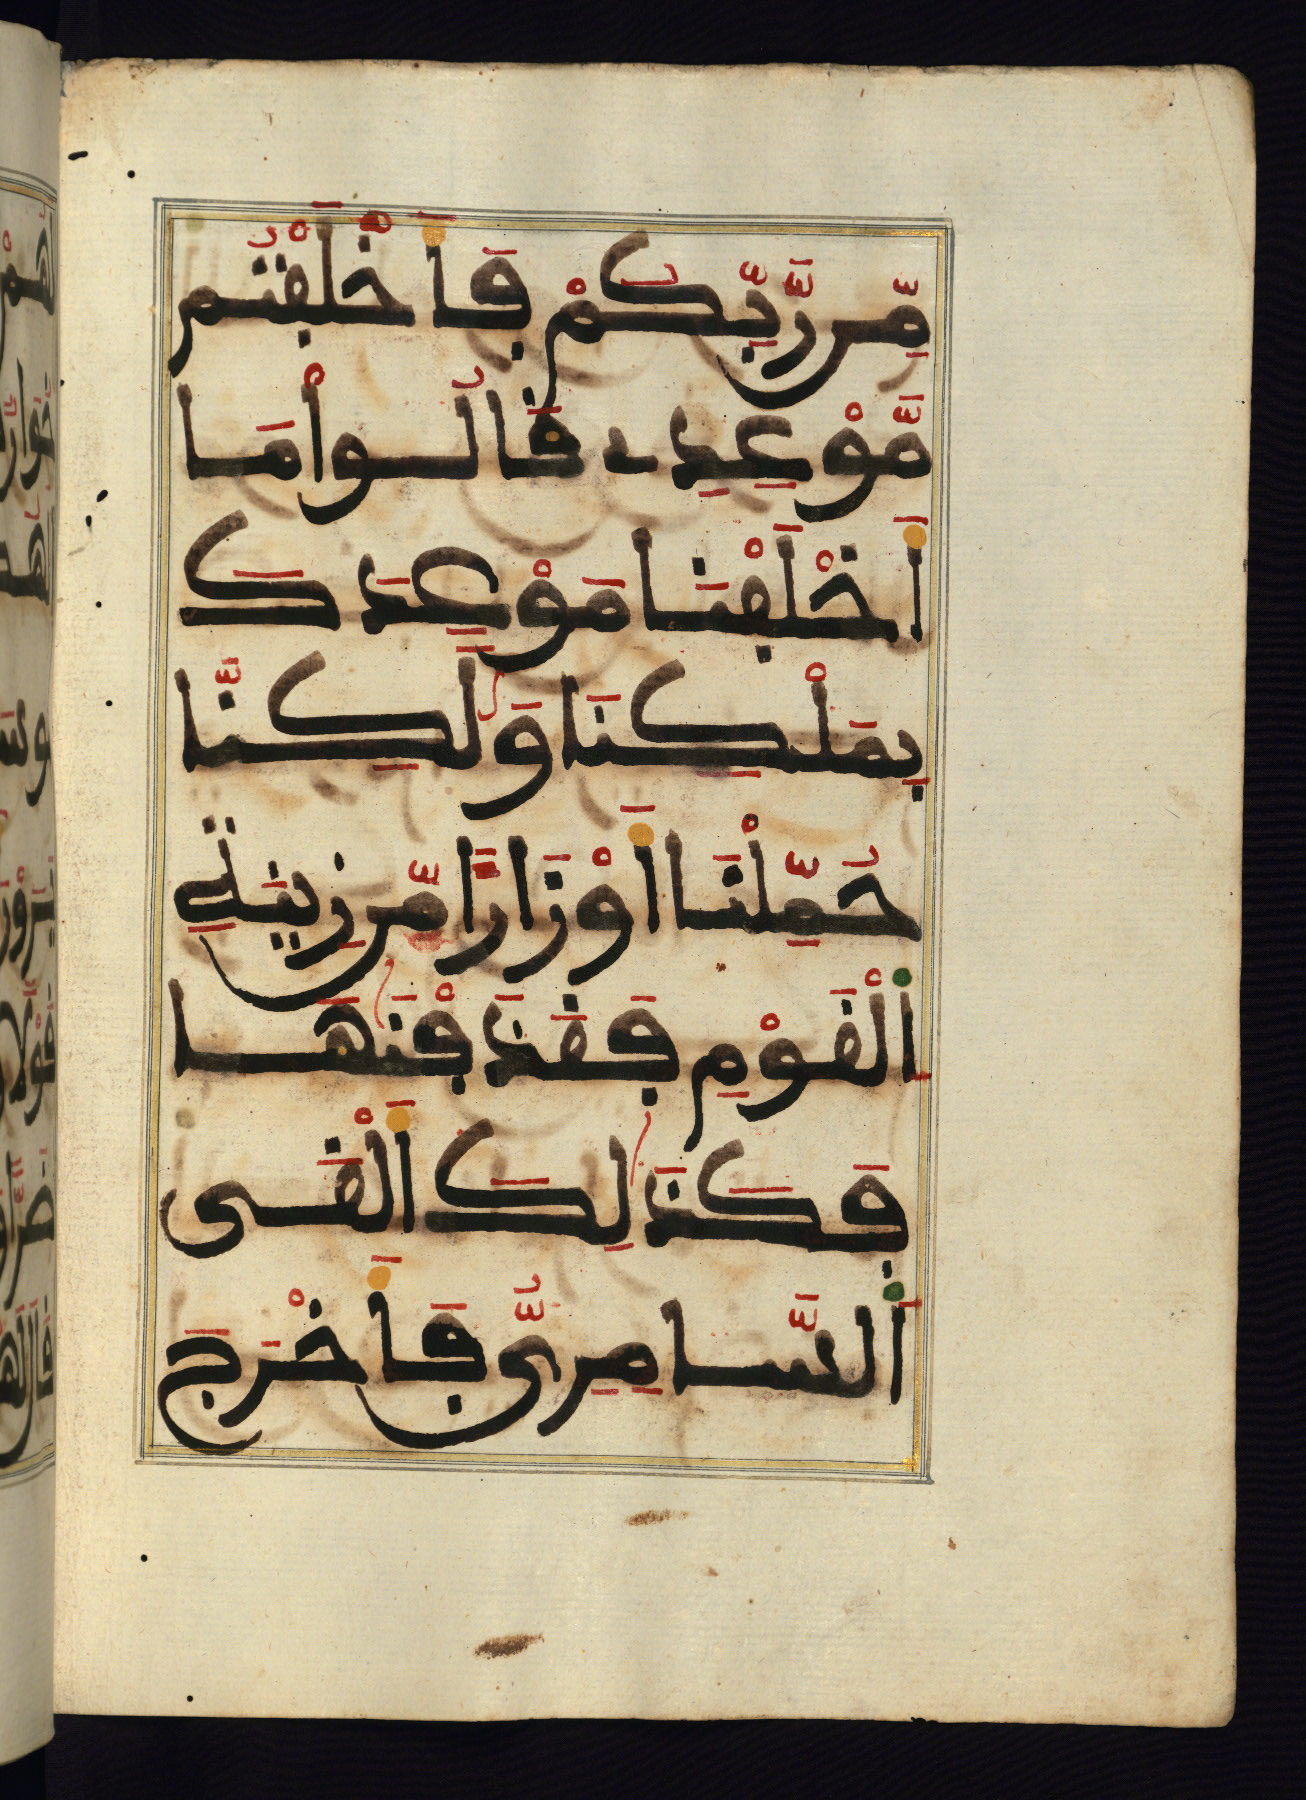 مِّن رَّبِّكُمْ فَأَخْلَفْتُم
مَّوْعِدِے قَالُوا۟ مَا
أَخْلَفْنَا مَوْعِدَكَ
بِمَلْكِنَا وَلَٰكِنَّا
حُمِّلْنَا أَوْزَارًا مِّن زِينَةِ
اِ۬لْقَوْمِ فَقَذَفْنَٰهَا
فَكَذَٰلِكَ أَلْقَى
اَ۬لسَّامِرِيُّ فَأَخْرَجَ